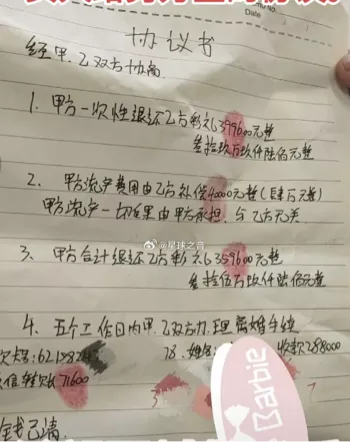 Date
协议书
经甲、乙双方协商
1、甲方一次性退还乙方彩礼399600元整
叁拾玖万玖仟陆佰元整
2、甲方流产费用由乙方补偿40000元整(肆万元整)
甲方流产一切后果由甲方承担,与乙方无关
@星球之音
3、甲方合计退还乙方彩礼359600元整
叁拾伍万玖仟陆佰元整
4、五个工作日内甲、乙双方办理离婚手续
卡号:62 78、姓名: 收款288000
信转账71600
Barbie
钱已清